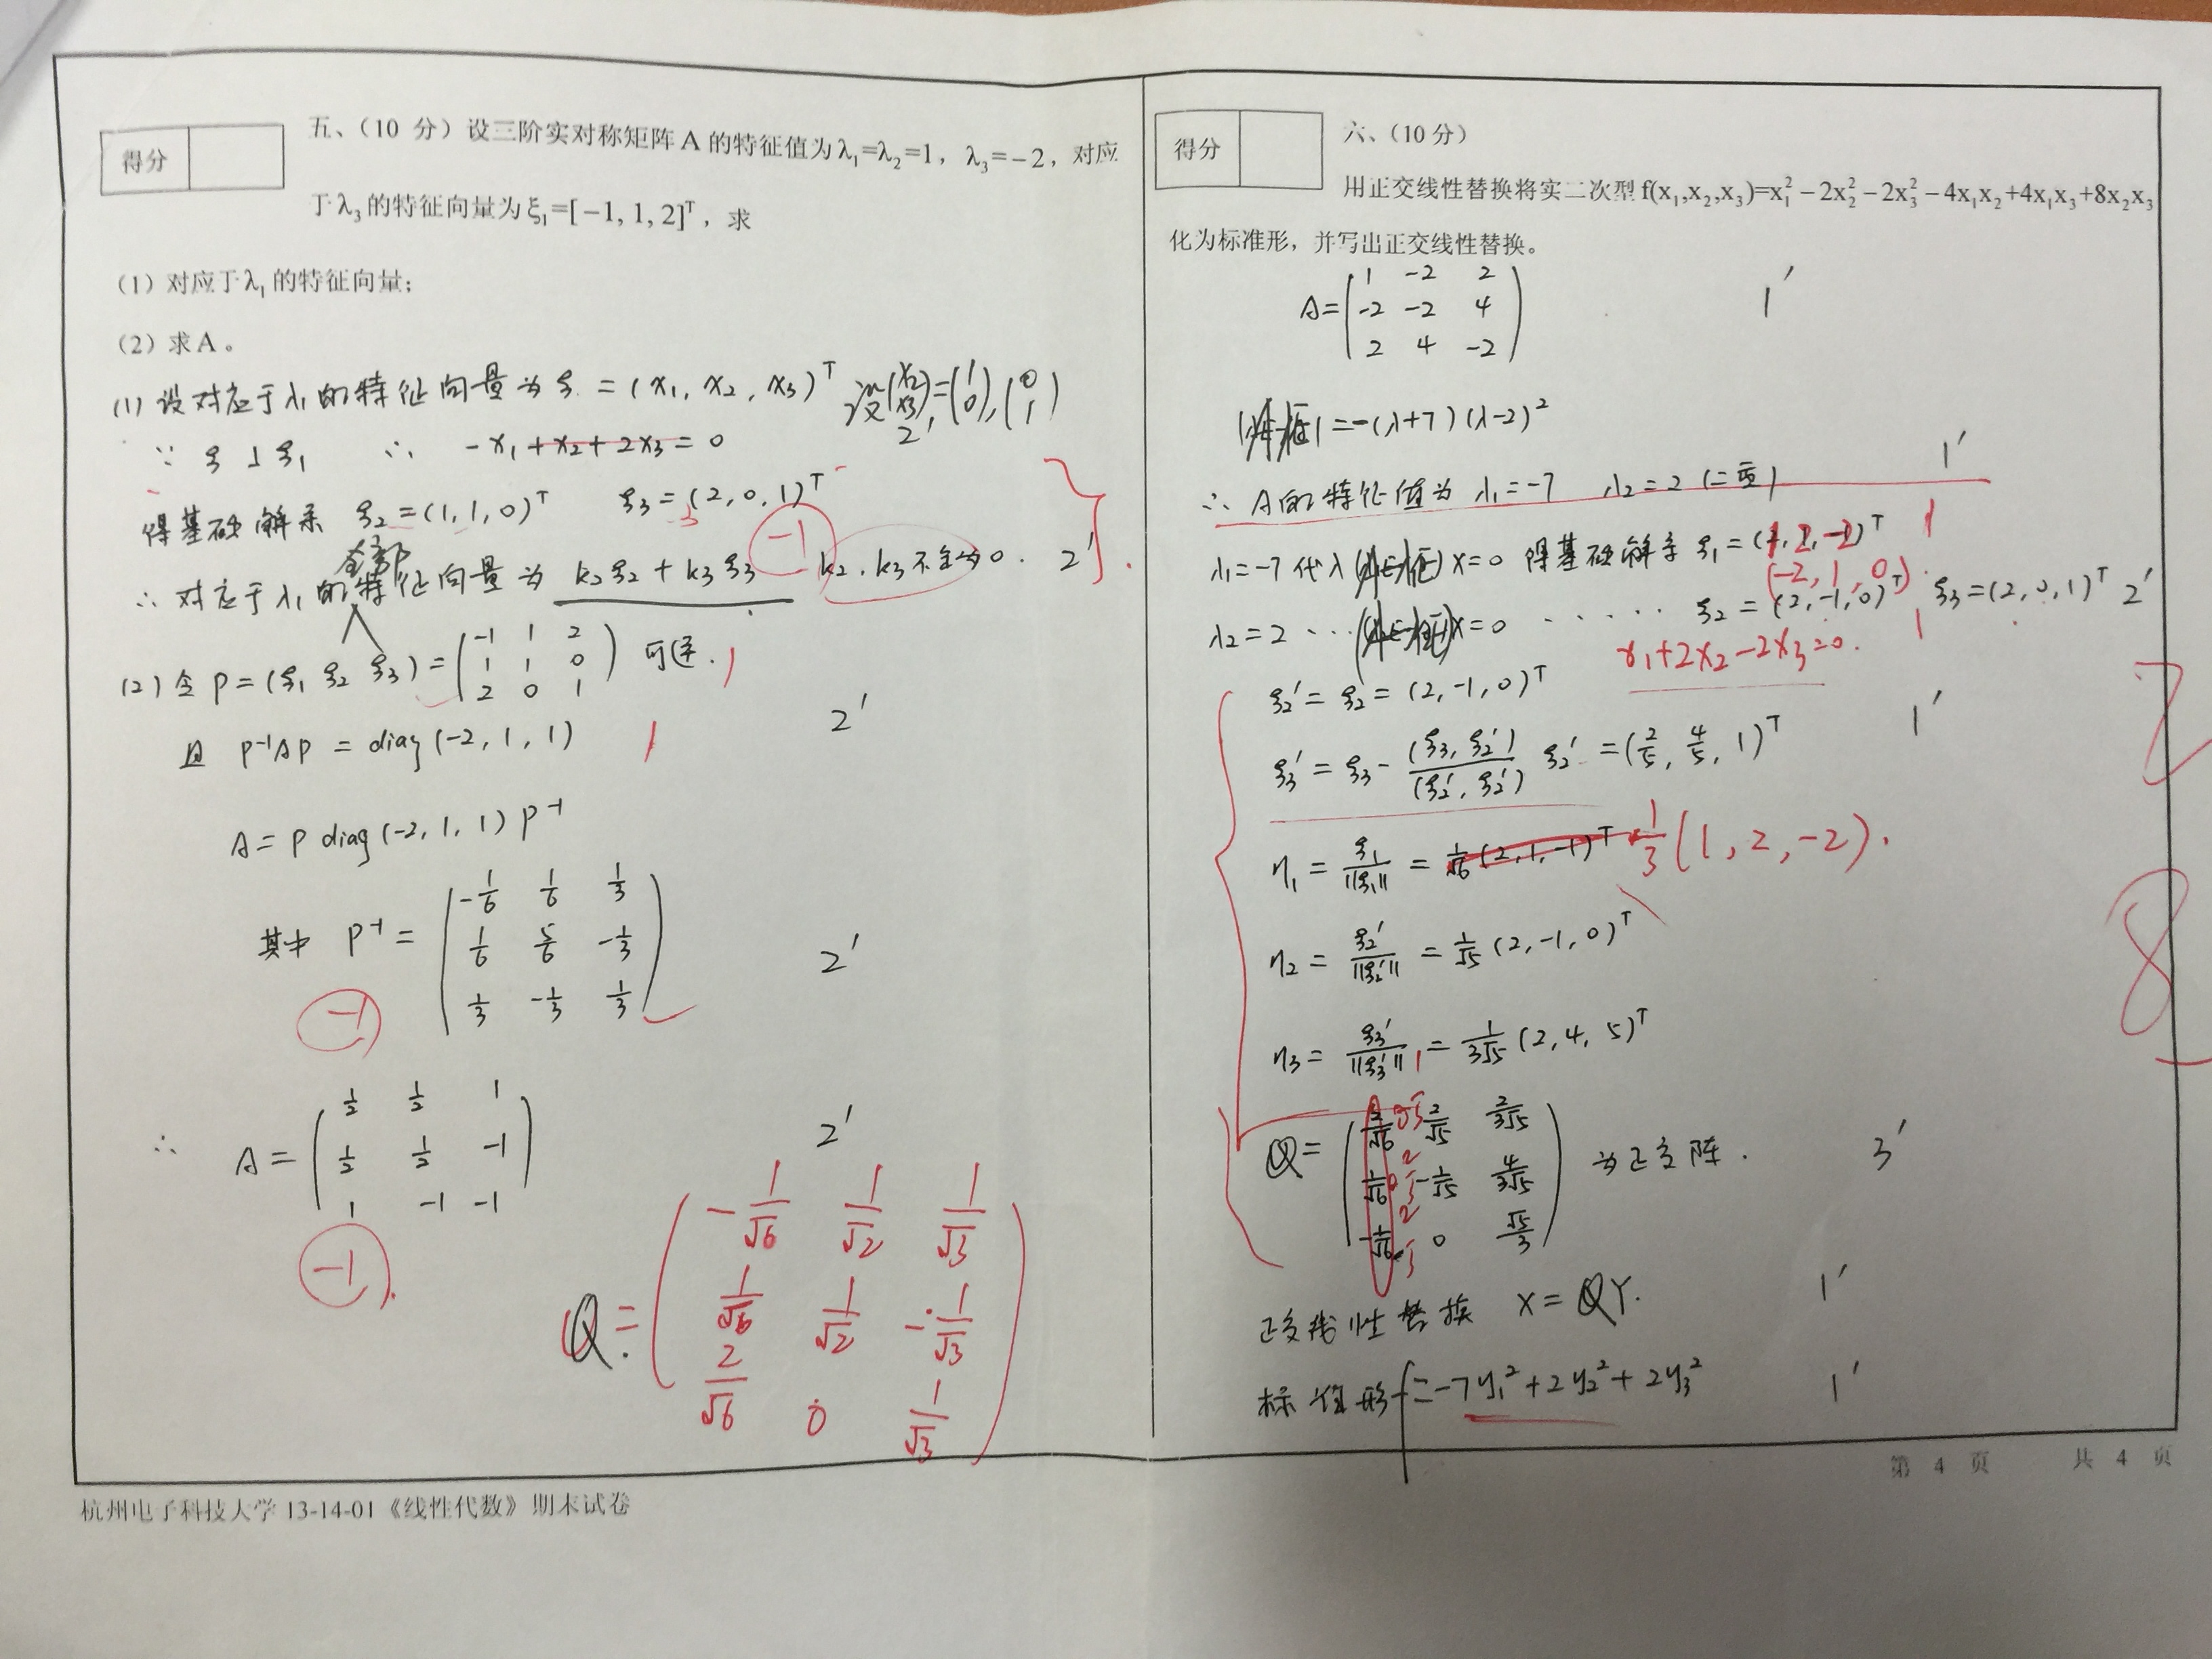 得分
五、（10 分）设三阶实对称矩阵 A 的特征值为 λ₁=λ₂=1，λ₃=−2，对应
于 λ₃ 的特征向量为 ξ₁=[−1, 1, 2]ᵀ，求
(1) 对应于 λ₁ 的特征向量；
(2) 求 A。
(1) 设对应于 λ₁ 的特征向量为 ξ = (x₁, x₂, x₃)ᵀ 设(x₂ x₃) = (1 0), (0 1)
∵ ξ ⊥ ξ₁ ∴ -x₁ + x₂ + 2x₃ = 0 2'
得基础解系 ξ₂ = (1, 1, 0)ᵀ ξ₃ = (2, 0, 1)ᵀ
-1
∴ 对应于 λ₁ 的全部特征向量为 k₂ξ₂ + k₃ξ₃ k₂, k₃不全为0. 2'
(2) 令 P = (ξ₁ ξ₂ ξ₃) = ( -1 1 2
1 1 0
2 0 1 ) 可逆. 1
且 P⁻¹AP = diag (-2, 1, 1) 1 2'
A = P diag (-2, 1, 1) P⁻¹
其中 P⁻¹ = ( -1/6 1/6 1/3
1/6 5/6 -1/3
1/3 -1/3 1/3 ) 2'
-1
∴ A = ( 1/2 1/2 1
1/2 1/2 -1
1 -1 -1 ) 2'
-1
Q = ( -1/√6 1/√2 1/√3
1/√6 1/√2 -1/√3
2/√6 0 1/√3 )
杭州电子科技大学 13-14-01《线性代数》期末试卷
得分
六、（10 分）
用正交线性替换将实二次型 f(x₁,x₂,x₃)=x₁²−2x₂²−2x₃²−4x₁x₂+4x₁x₃+8x₂x₃
化为标准形，并写出正交线性替换。
A = ( 1 -2 2
-2 -2 4
2 4 -2 ) 1'
= -(λ+7)(λ-2)²
∴ A的特征值为 λ₁ = -7 λ₂ = 2 (二重) 1'
λ₁ = -7 代入 x = 0 得基础解系 ξ₁ = (1, 2, -2)ᵀ 1
(-2, 1, 0)
λ₂ = 2 ... x = 0 ..... ξ₂ = (2, -1, 0)ᵀ ξ₃ = (2, 0, 1)ᵀ 2'
x₁+2x₂-2x₃=0. 1
ξ₂' = ξ₂ = (2, -1, 0)ᵀ
ξ₃' = ξ₃ - (ξ₃, ξ₂')/(ξ₂', ξ₂') ξ₂' = (2/5, 4/5, 1)ᵀ 1'
7
η₁ = ξ₁/||ξ₁|| = 1/√6 (2, 1, -1)ᵀ 1/3 (1, 2, -2).
η₂ = ξ₂'/||ξ₂'|| = 1/√5 (2, -1, 0)ᵀ
8
η₃ = ξ₃'/||ξ₃'|| = 1/3√5 (2, 4, 5)ᵀ
Q = ( 2/√6 2/√5 2/3√5
1/√6 -1/√5 4/3√5
-1/√6 0 √5/3 ) 为正交阵. 3'
正交线性替换 X = QY. 1'
标准形 f = -7y₁² + 2y₂² + 2y₃² 1'
第 4 页 共 4 页